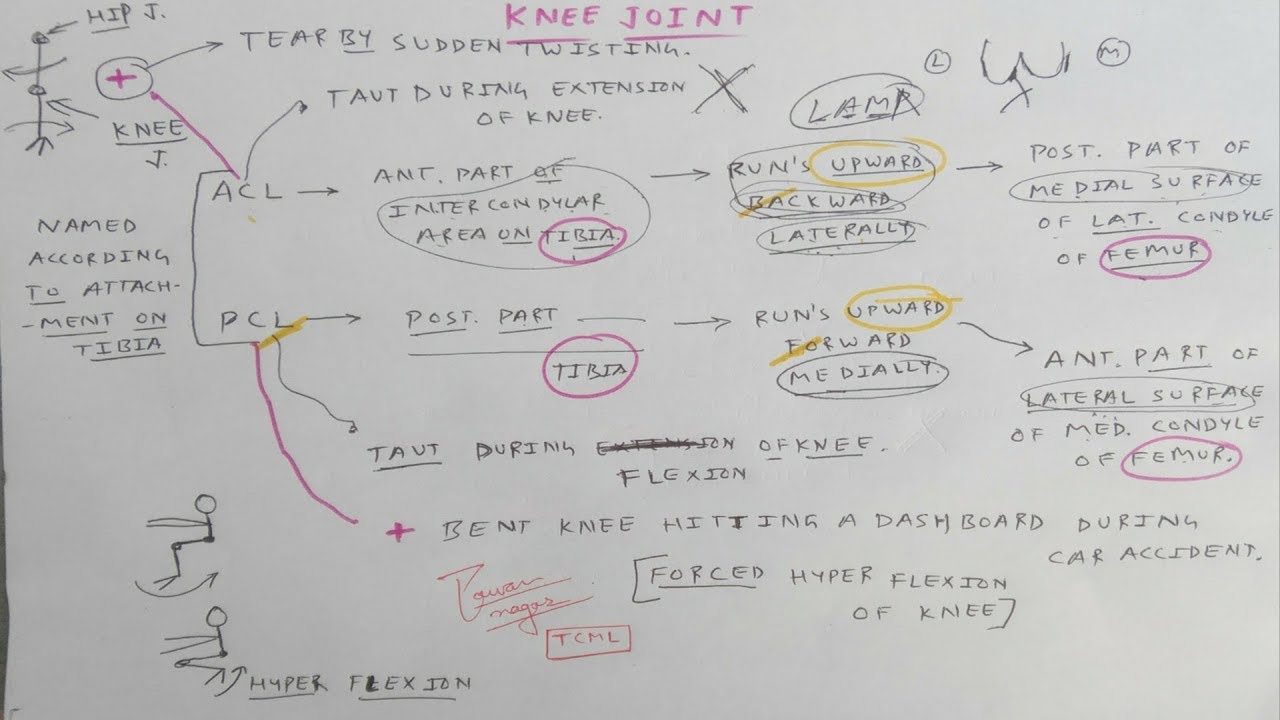 KNEE JOINT
HIP J.
+
TEAR BY SUDDEN TWISTING.
TAUT DURING EXTENSION
OF KNEE.
KNEE
J.
L
M
LAMP
ACL
ANT. PART OF
INTERCONDYLAR
AREA ON TIBIA.
RUN'S UPWARD
BACKWARD
LATERALLY
POST. PART OF
MEDIAL SURFACE
OF LAT. CONDYLE
OF FEMUR
NAMED
ACCORDING
TO ATTACH-
-MENT ON
TIBIA
PCL
POST. PART
TIBIA
RUN'S UPWARD
FORWARD
MEDIALLY.
ANT. PART OF
LATERAL SURFACE
OF MED. CONDYLE
OF FEMUR.
TAUT DURING EXTENSION OF KNEE.
FLEXION
+ BENT KNEE HITTING A DASHBOARD DURING
CAR ACCIDENT.
[FORCED HYPER FLEXION
OF KNEE]
Pawan
nagar
TCML
HYPER FLEXION